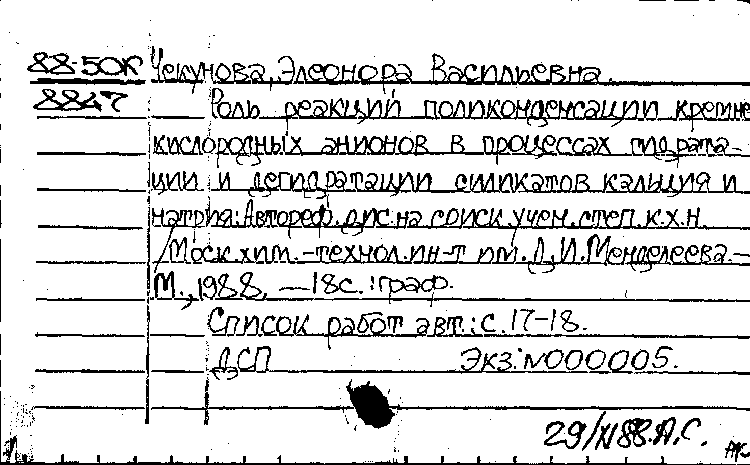 88-50К Чекунова, Элеонора Васильевна.
8847 Роль реакций поликонденсации кремне
кислородных анионов в процессах гидрата-
ции и дегидратации силикатов кальция и
натрия: Автореф. дис. на соиск. учен. степ. к.х.н.
/Моск. хим.-технол. ин-т им. Д.И. Менделеева.-
М., 1988. —18с.: граф.
Список работ авт.: с. 17-18.
ДСП Экз: №000005.
29/XI 88. А.С.